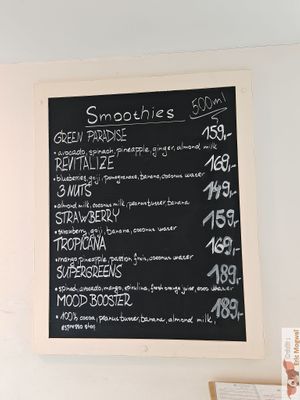 Smoothies 500ml
GREEN PARADISE 159,-
• avocado, spinach, pineapple, ginger, almond milk
REVITALIZE 169,-
• blueberries, goji, pomegranate, banana, coconut water
3 NUTS 149,-
• almond milk, coconut milk, peanut butter, banana
STRAWBERRY 159,-
• strawberry, goji, banana, coconut water
TROPICANA 169,-
• mango, pineapple, passion fruit, coconut water
SUPERGREENS 189,-
• spinach, avocado, mango, spirulina, fresh orange juice, coco water
MOOD BOOSTER 189,-
• 100% cocoa, peanut butter, banana, almond milk,
espresso shot
Credit:
Eric Mogwaï